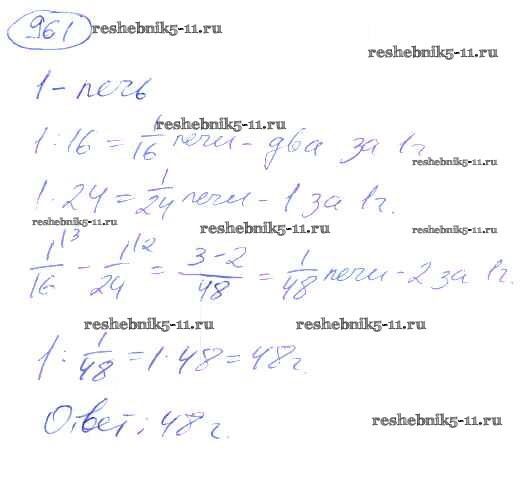 961 reshebnik5-11.ru
reshebnik5-11.ru
1 - печь
reshebnik5-11.ru
1 : 16 = 1/16 печи - два за 1г.
reshebnik5-11.ru
1 : 24 = 1/24 печи - 1 за 1г.
reshebnik5-11.ru reshebnik5-11.ru reshebnik5-11.ru
1/16 |3 - 1/24 |2 = 3-2/48 = 1/48 печи - 2 за 1г.
reshebnik5-11.ru reshebnik5-11.ru
1 : 1/48 = 1 · 48 = 48г.
Ответ: 48 г.
reshebnik5-11.ru